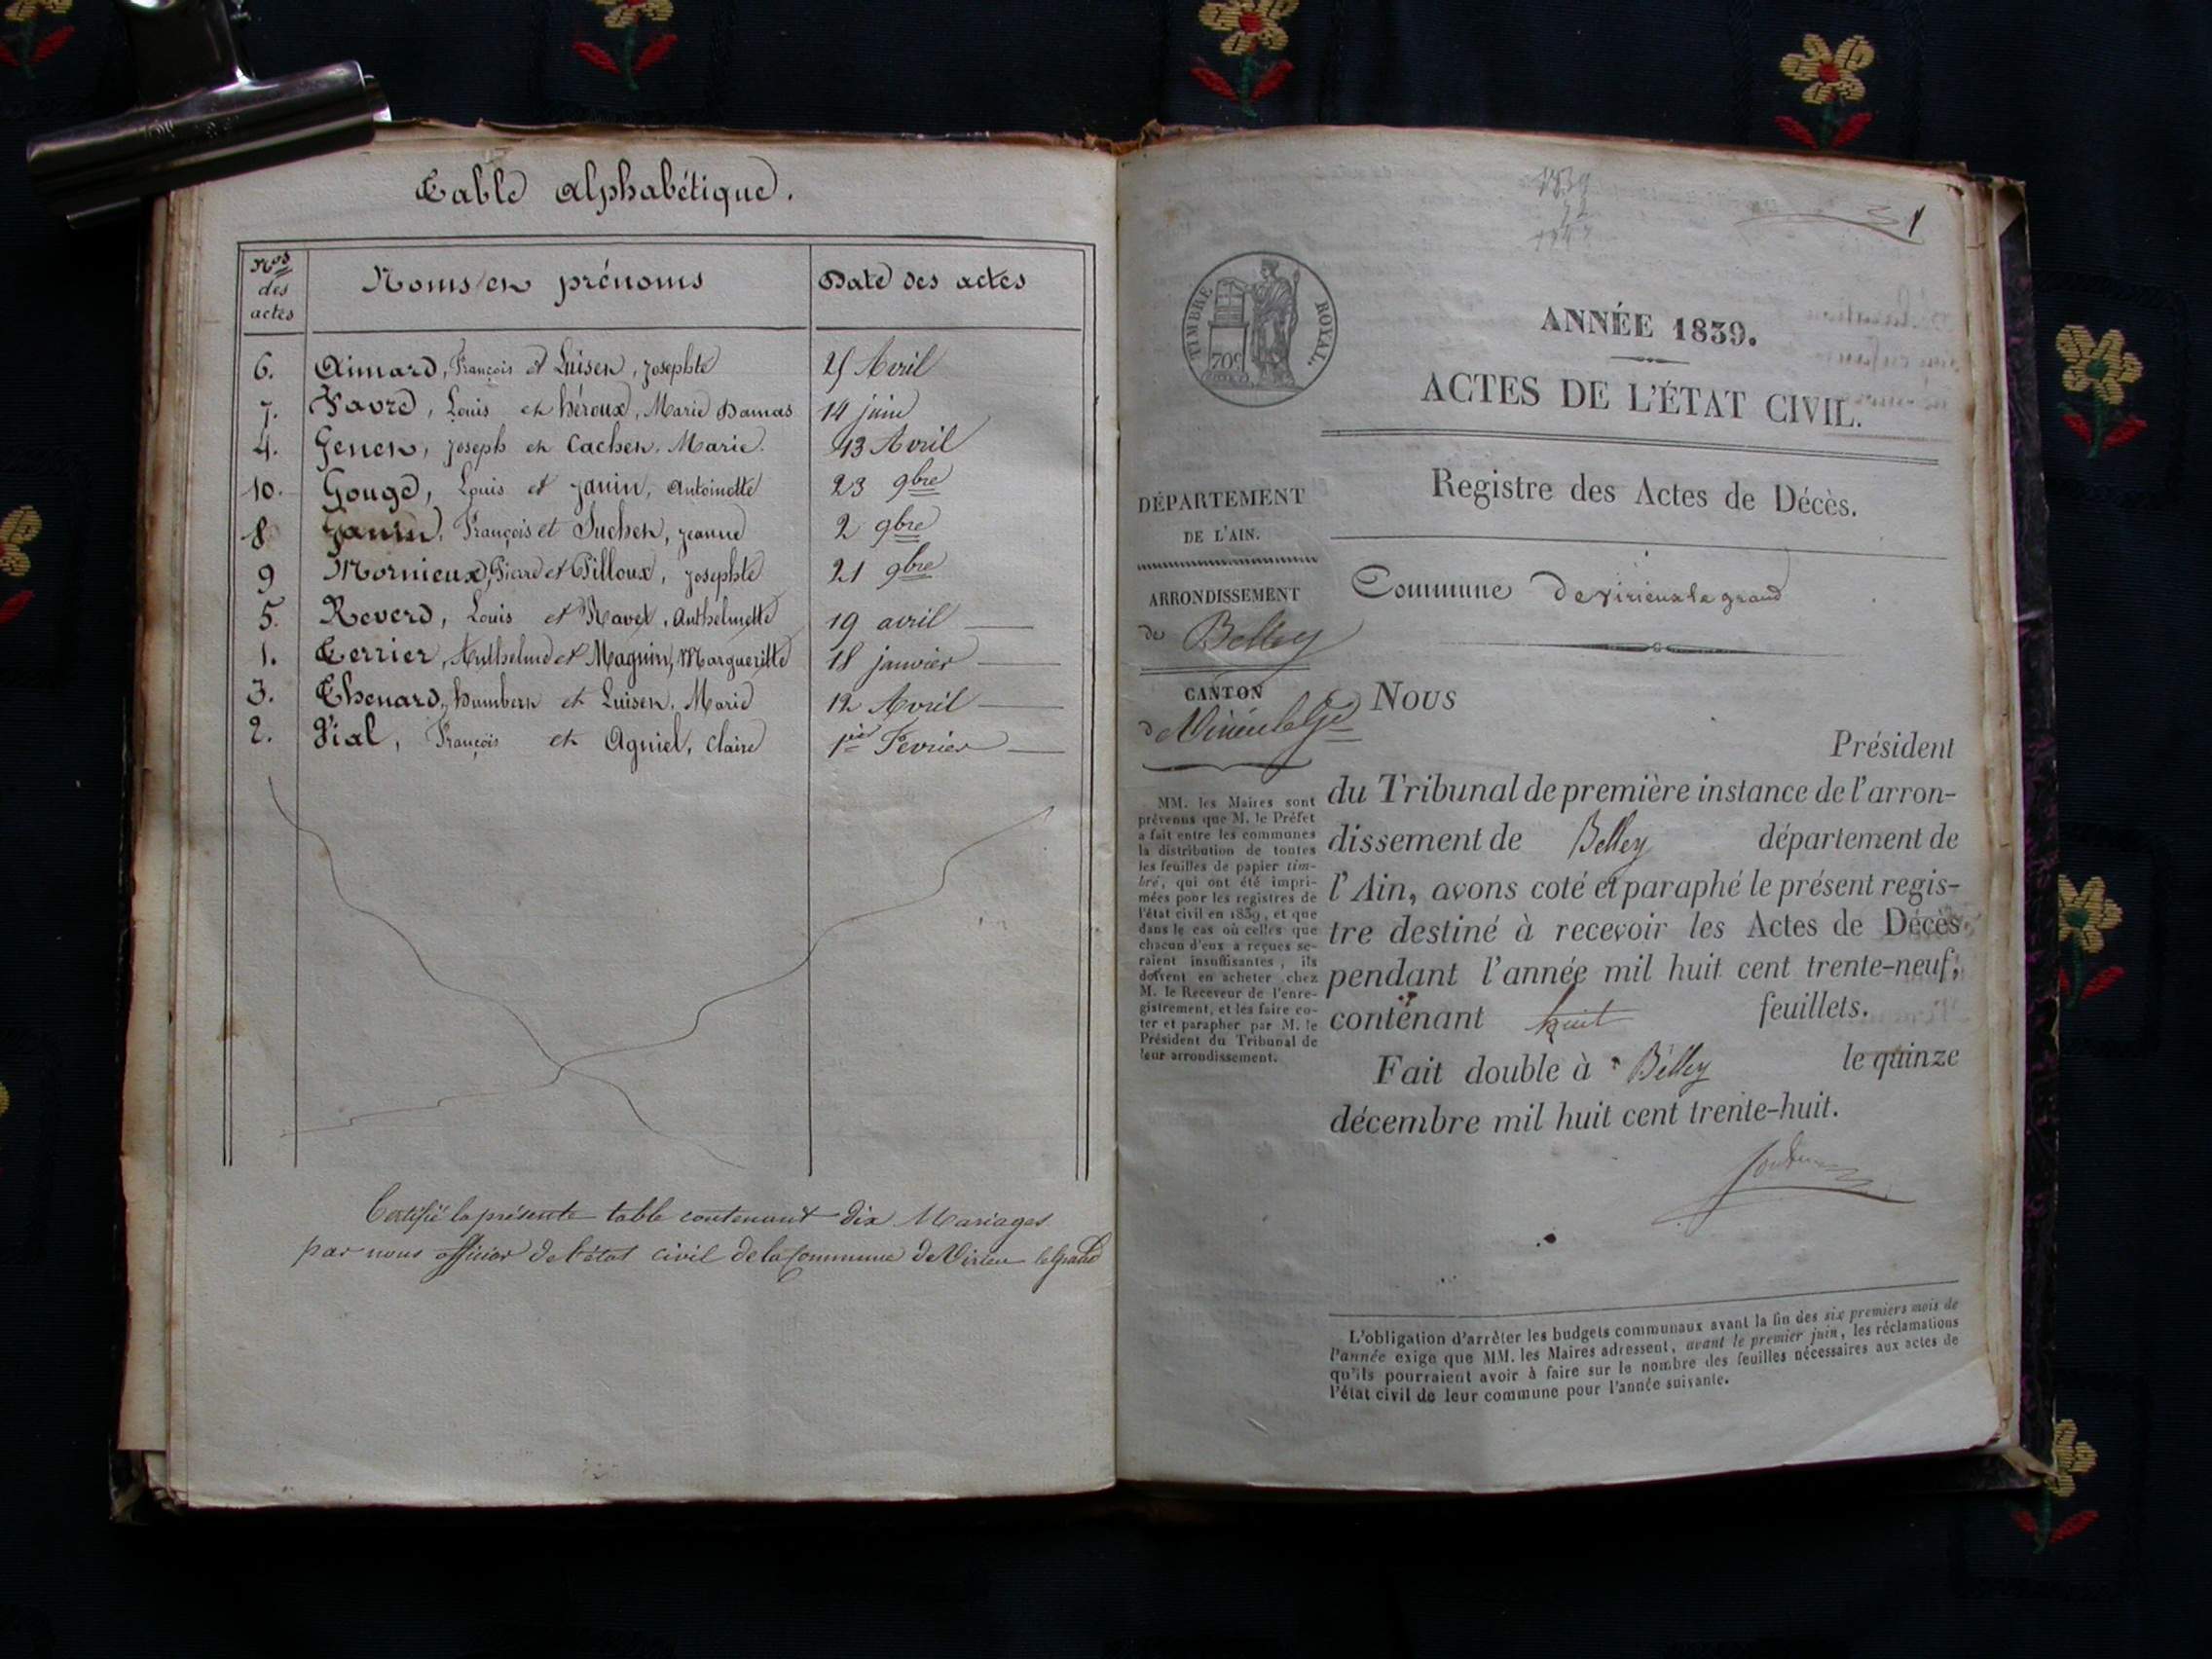 Table alphabétique.
Nos des actes
Noms et prénoms
Date des actes
6. Aimard, François et Luiset, Josephte 25 Avril
7. Favre, Louis et héroux, Marie Damas 14 juin
4. Genet, joseph et Cachet, Marie. 13 Avril
10. Gouge, Louis et Janin, Antoinette 23 9bre
8 Janin, François et Suchet, jeanne 2 9bre
9 Mornieux, Piere et Pilloux, Josephte 21 9bre
5. Reverd, Louis et Ravet, Anthelmette 19 avril
1. Terrier, Anthelme et Magnin, Margueritte 18 janvier
3. Thenard, humbert et Luiset, Marie 12 Avril
2. Vial, François et Agniel, Claire 1er Fevrier
Certifié la présente table contenant dix Mariages
par nous officier de l'état civil de la Commune de Virieu le Grand
1839
1
TIMBRE ROYAL.
70c
ANNÉE 1839.
ACTES DE L'ÉTAT CIVIL.
Registre des Actes de Décès.
DÉPARTEMENT
DE L'AIN.
ARRONDISSEMENT
de Belley
CANTON
de Virieu le Gd
MM. les Maires sont
prévenus que M. le Préfet
a fait entre les communes
la distribution de toutes
les feuilles de papier tim-
bré, qui ont été impri-
mées pour les registres de
l'état civil en 1839, et que
dans le cas où celles que
chacun d'eux a reçues se-
raient insuffisantes, ils
doivent en acheter chez
M. le Receveur de l'enre-
gistrement, et les faire co-
ter et parapher par M. le
Président du Tribunal de
leur arrondissement.
Commune de virieux le grand
NOUS
Président
du Tribunal de première instance de l'arron-
dissement de Belley département de
l'Ain, avons coté et paraphé le présent regis-
tre destiné à recevoir les Actes de Décès
pendant l'année mil huit cent trente-neuf,
contenant huit feuillets.
Fait double à Belley le quinze
décembre mil huit cent trente-huit.
L'obligation d'arrêter les budgets communaux avant la fin des six premiers mois de
l'année exige que MM. les Maires adressent, avant le premier juin, les réclamations
qu'ils pourraient avoir à faire sur le nombre des feuilles nécessaires aux actes de
l'état civil de leur commune pour l'année suivante.